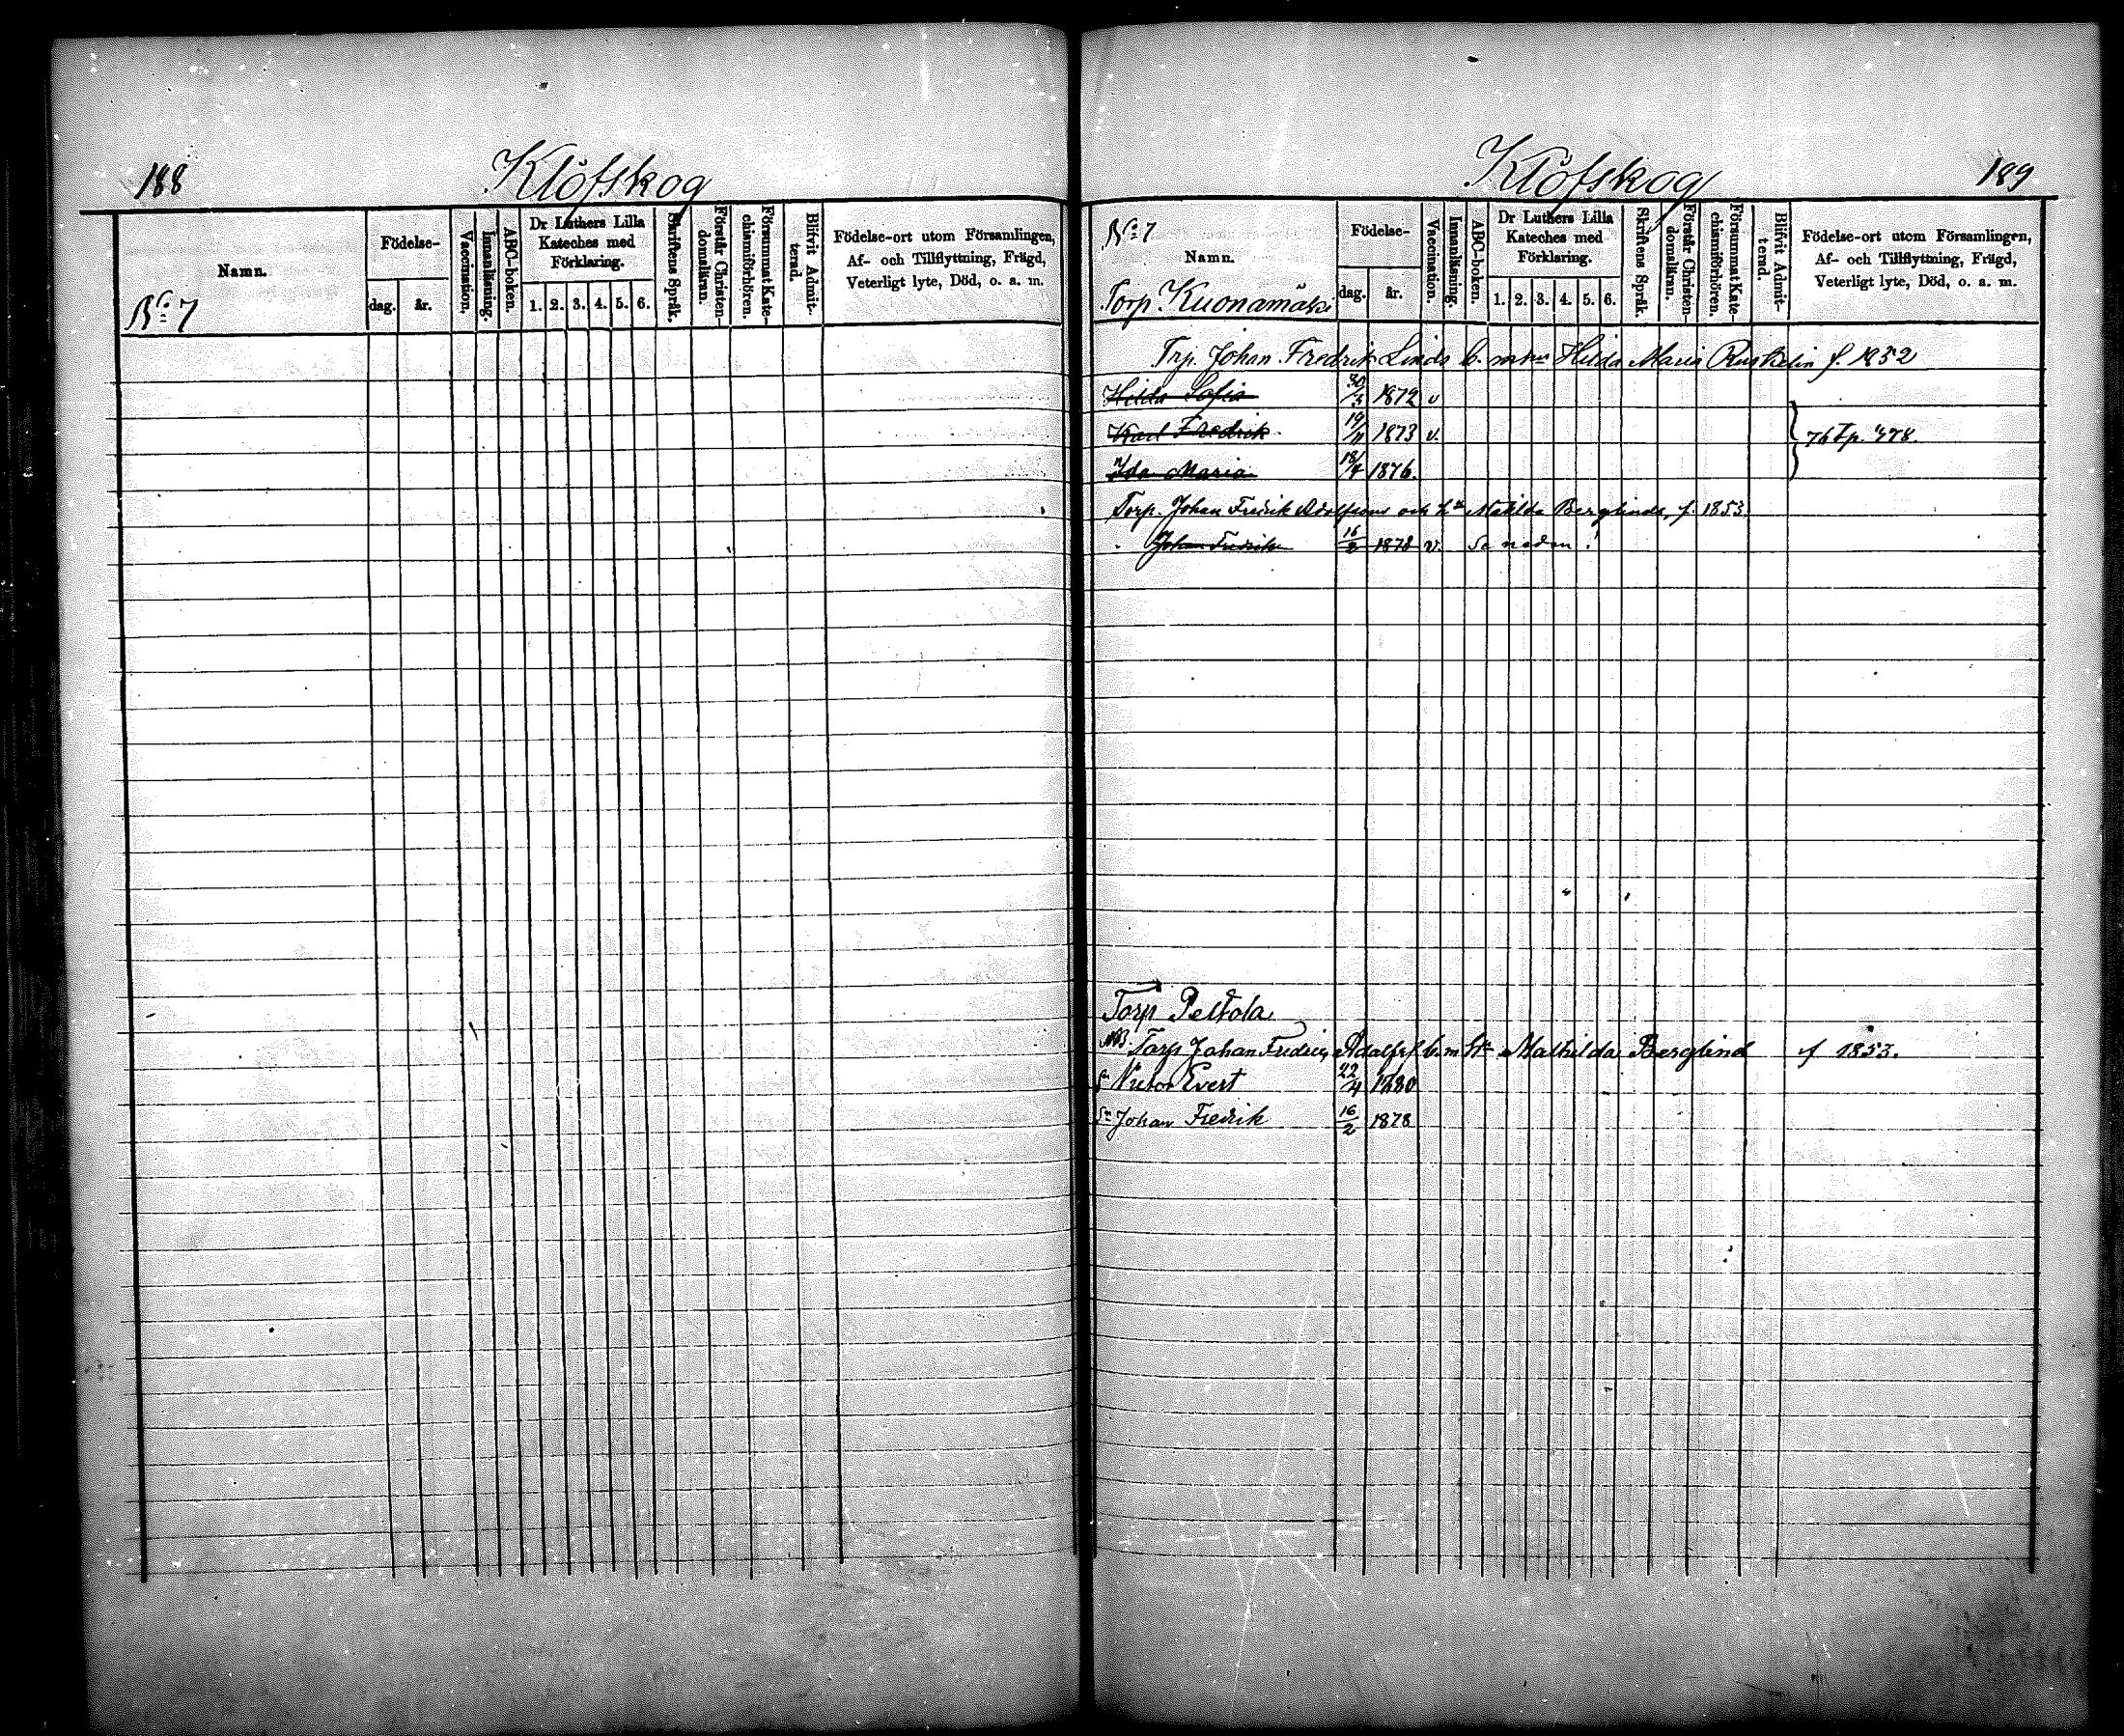 188
Klöfskog
Namn.
Födelse-
dag.
år.
Vaccination.
Innanläsning.
ABC-boken.
Dr Luthers Lilla
Kateches med
Förklaring.
1. 2. 3. 4. 5. 6.
Skriftens Språk.
Förstår Christen-
domsläran.
Försummat Kate-
chismiförhören.
Blifvit Admit-
terad.
Födelse-ort utom Församlingen,
Af- och Tillflyttning, Frägd,
Veterligt lyte, Död, o. a. m.
No 7
Klöfskog
189
No 7
Namn.
Födelse-
dag.
år.
Vaccination.
Innanläsning.
ABC-boken.
Dr Luthers Lilla
Kateches med
Förklaring.
1. 2. 3. 4. 5. 6.
Skriftens Språk.
Förstår Christen-
domsläran.
Försummat Kate-
chismiförhören.
Blifvit Admit-
terad.
Födelse-ort utom Församlingen,
Af- och Tillflyttning, Frägd,
Veterligt lyte, Död, o. a. m.
Torp. Kuonamäki
Trp. Johan Fredrik Linds b. m. Hilda Maria f. 1852
Hilda Sofia 1872 v
Karl Fredrik 19/11 1873 v.
Ida Maria 18/4 1876.
Torp. Johan Fredrik Adolfsons och Matilda Berglinds, f. 1853
Johan Fredrik 16/2 1878 v. Se nedan!
Torp Peltola
NB. Torp Johan Fredrik Adolfss b. m. Mathilda Berglind f 1853.
Sn Victor Evert 22/4 1880
Sn Johan Fredrik 16/2 1878